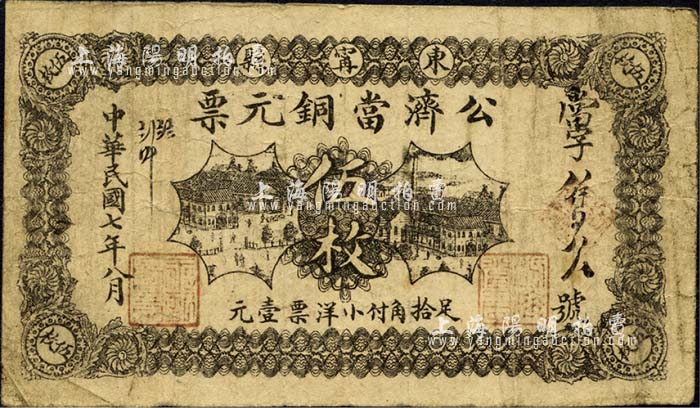 上海陽明拍賣
www.yangmingauction.com
東甯縣
公濟當銅元票
伍枚
足拾角付小洋票壹元
中華民國七年八月
號
伍枚
伍枚
伍枚
上海陽明拍賣
www.yangmingauction.com
上海陽明拍賣
www.yangmingauction.com